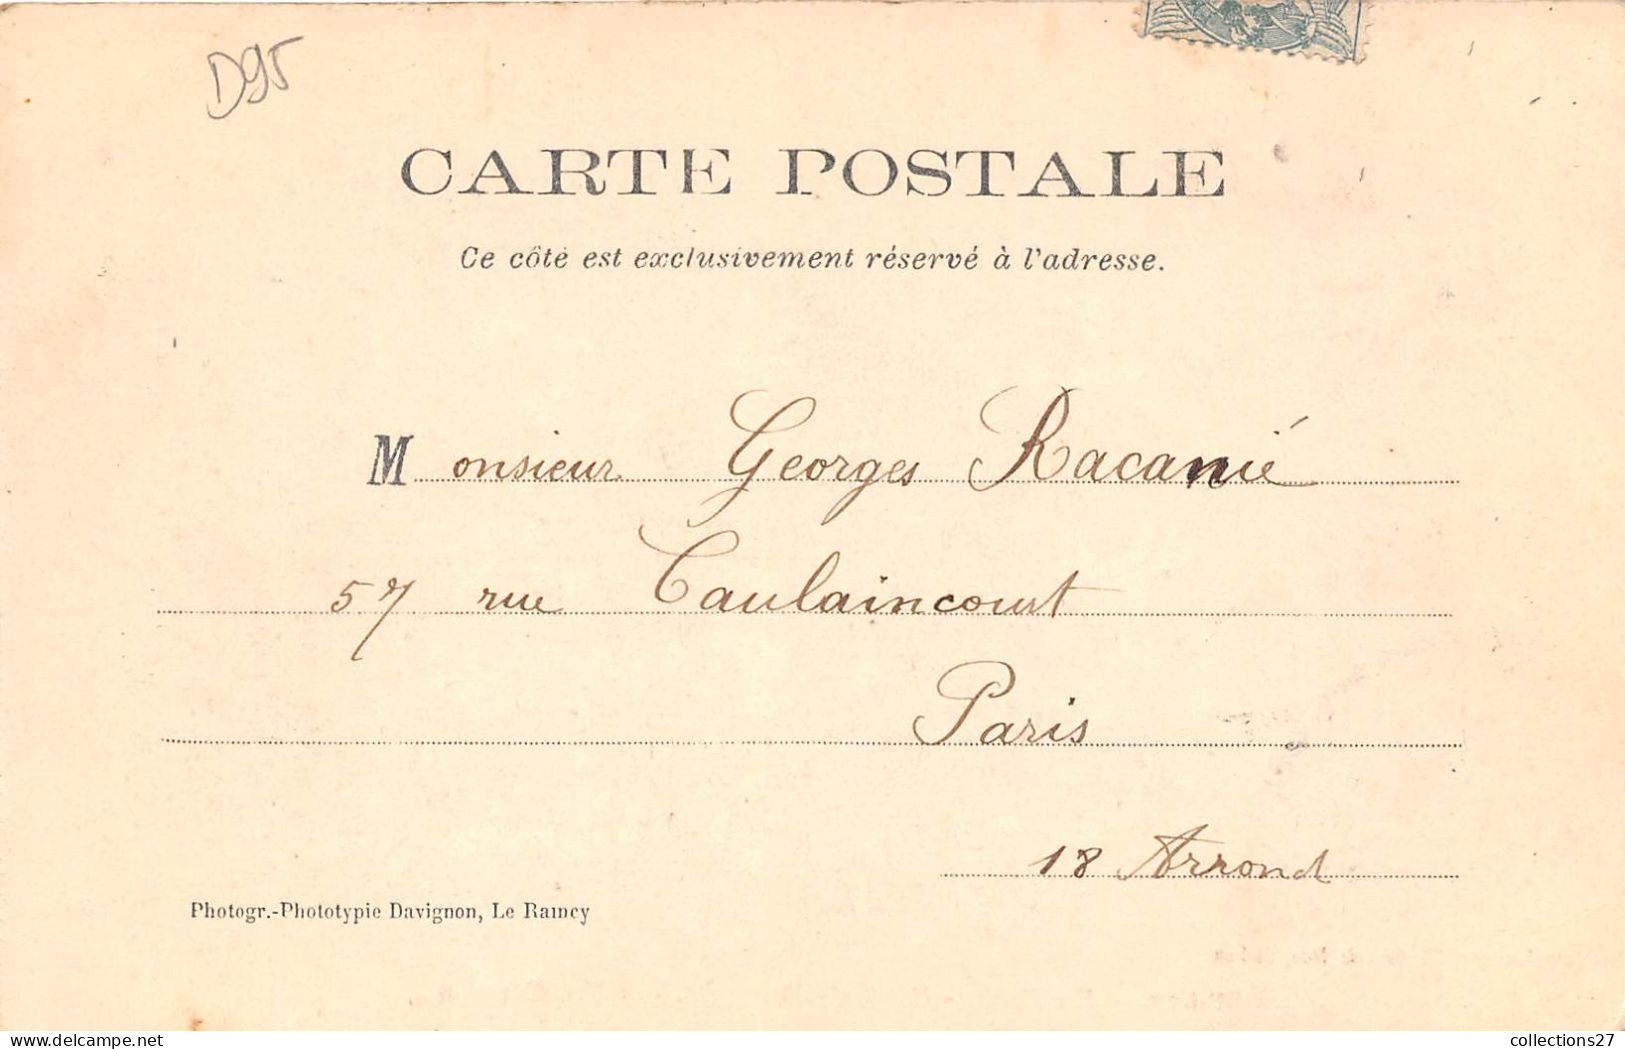 D95
CARTE POSTALE
Ce côté est exclusivement réservé à l'adresse.
Monsieur Georges Racanié
57 rue Caulaincourt
Paris
18 Arrond
Photogr.-Phototypie Davignon, Le Raincy
delcampe.net
collections27